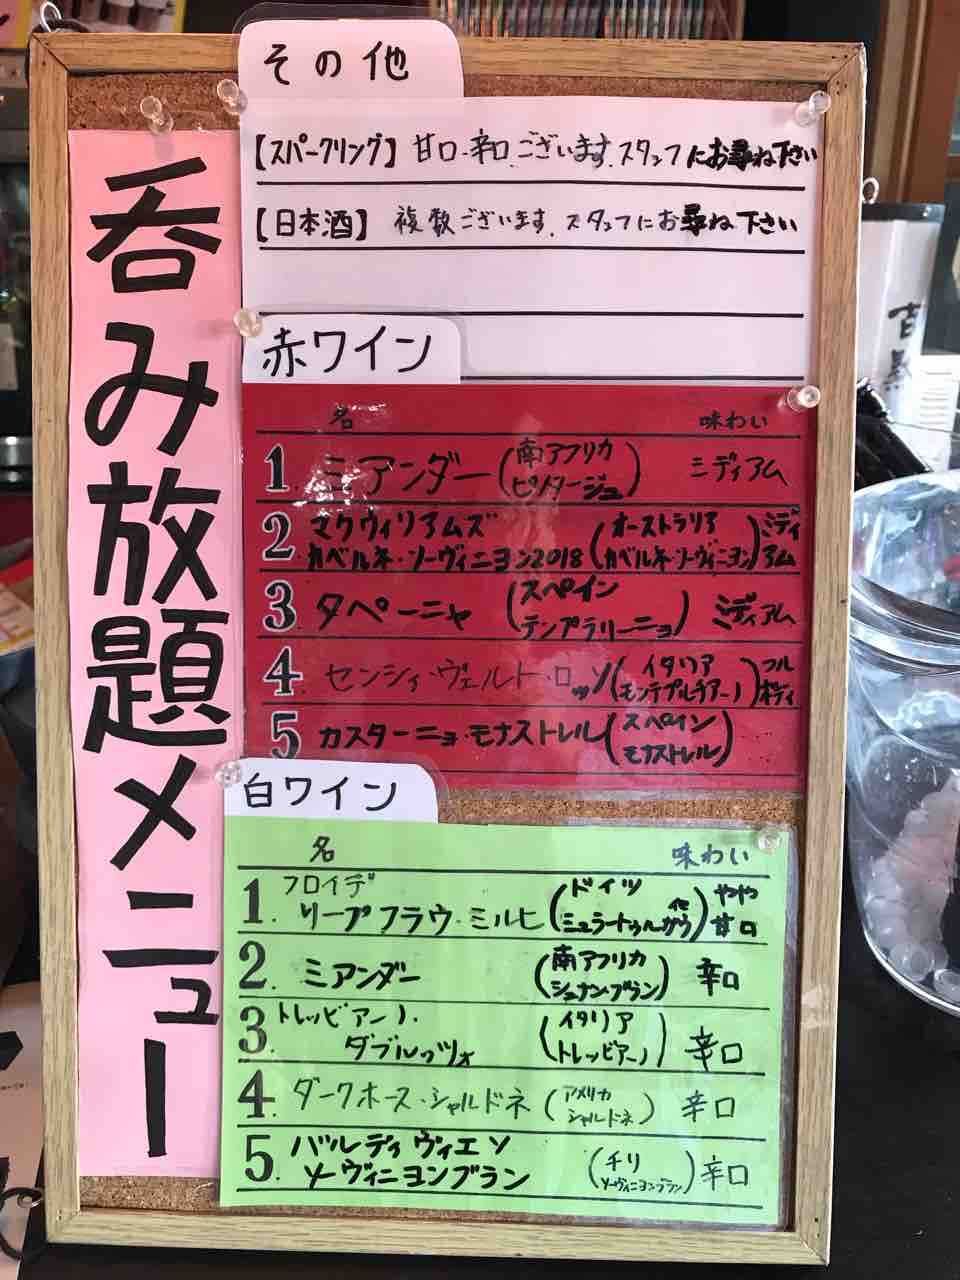 呑み放題メニュー
その他
【スパークリング】甘口・辛口ございます。スタッフにお尋ね下さい
【日本酒】複数ございます。スタッフにお尋ね下さい
赤ワイン
名 味わい
1 ミアンダー (南アフリカ ピノタージュ) ミディアム
2 マクウィリアムズ カベルネ・ソーヴィニヨン2018 (オーストラリア カベルネ・ソーヴィニヨン) ミディアム
3 タペーニャ (スペイン テンプラリーニョ) ミディアム
4 センシィ・ヴェルト・ロッソ (イタリア モンテプルチアーノ) フルボディ
5 カスターニョ・モナストレル (スペイン モナストレル)
白ワイン
名 味わい
1. フロイデ リープフラウ・ミルヒ (ドイツ ミュラートゥルガウ他) やや甘口
2. ミアンダー (南アフリカ シュナンブラン) 辛口
3. トレッビアーノ・ダブルッツォ (イタリア トレッビアーノ) 辛口
4. ダークホース・シャルドネ (アメリカ シャルドネ) 辛口
5. バルディヴィエソ ソーヴィニヨンブラン (チリ ソーヴィニヨンブラン) 辛口